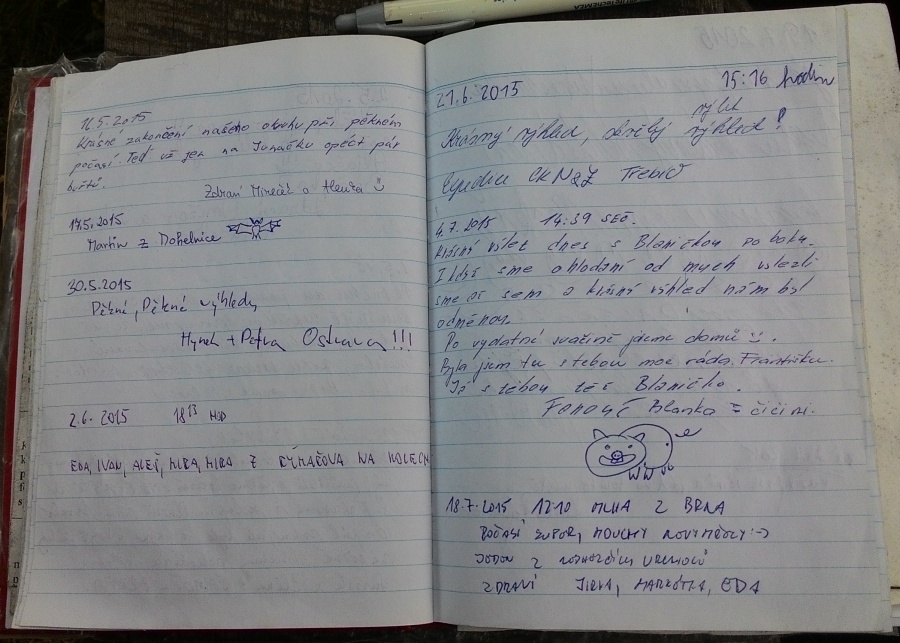 16.5.2015
Krásné zakončení našeho okruhu při pěkném
počasí. Teď už jen na Junačku opéct pár
buřtů.
Zdraví Mireček a Alenka
17.5.2015
Martin z Dohelnice
30.5.2015
Pěkné, Pěkné výhledy
Hynek + Petra Ostrava!!!
2.6. 2015 18 13 HOD
EDA, IVAN, ALEŠ, MIRA, MIRA Z RÝMAŘOVA NA KOLECH
21.6.2015 15:16 hodin
výlet
Krásný výhled, výhled!
Expedice CK Třebíč
4.7. 2015 14:39 SEČ.
Krásný výlet dnes s Blaničkou po boku.
I když sme ohlodaní od much vylezli
sme až sem a krásný výhled nám byl
odměnou.
Po vydatné svačině jdeme domů.
Byla jsem tu s tebou moc ráda Františku.
Já s tebou též Blaničko.
Blanka čičini.
18.7.2015 12:10 MLHA Z BRNA
POČASÍ SUPER, MOUCHY :-)
JDOU Z
ZDRAVÍ JIRKA, MARKÉTKA, EDA